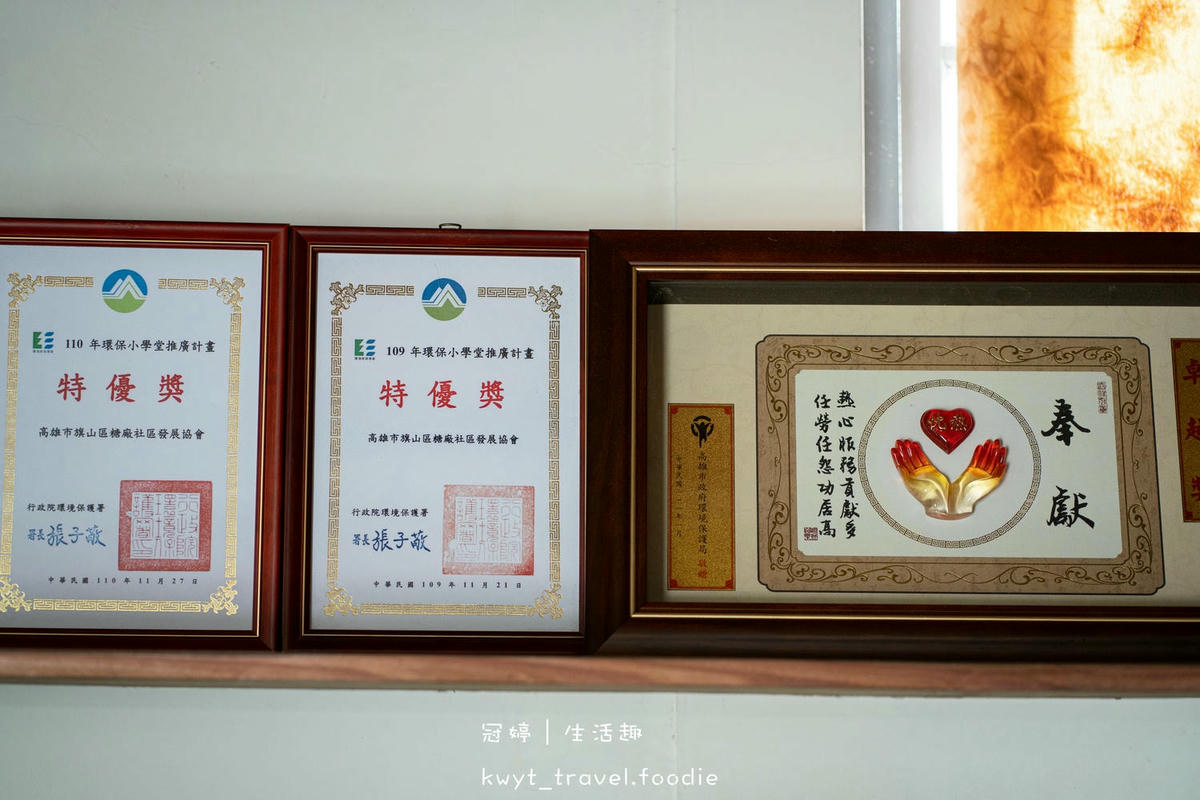 110 年環保小學堂推廣計畫
特優獎
高雄市旗山區糖廠社區發展協會
行政院環境保護署
署長 張子敬
中華民國 110 年 11 月 27 日
109 年環保小學堂推廣計畫
特優獎
高雄市旗山區糖廠社區發展協會
行政院環境保護署
署長 張子敬
中華民國 109 年 11 月 21 日
奉獻
熱心服務貢獻多
任勞任怨功居高
高雄市政府環境保護局 敬贈
冠婷｜生活趣
kwyt_travel.foodie